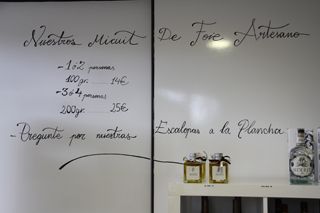 Nuestros Micuit De Foie Artesano
- 1 ó 2 personas
100gr. 14€
- 3 ó 4 personas
200gr. 25€
- Pregunte por nuestras Escalopas a la Plancha